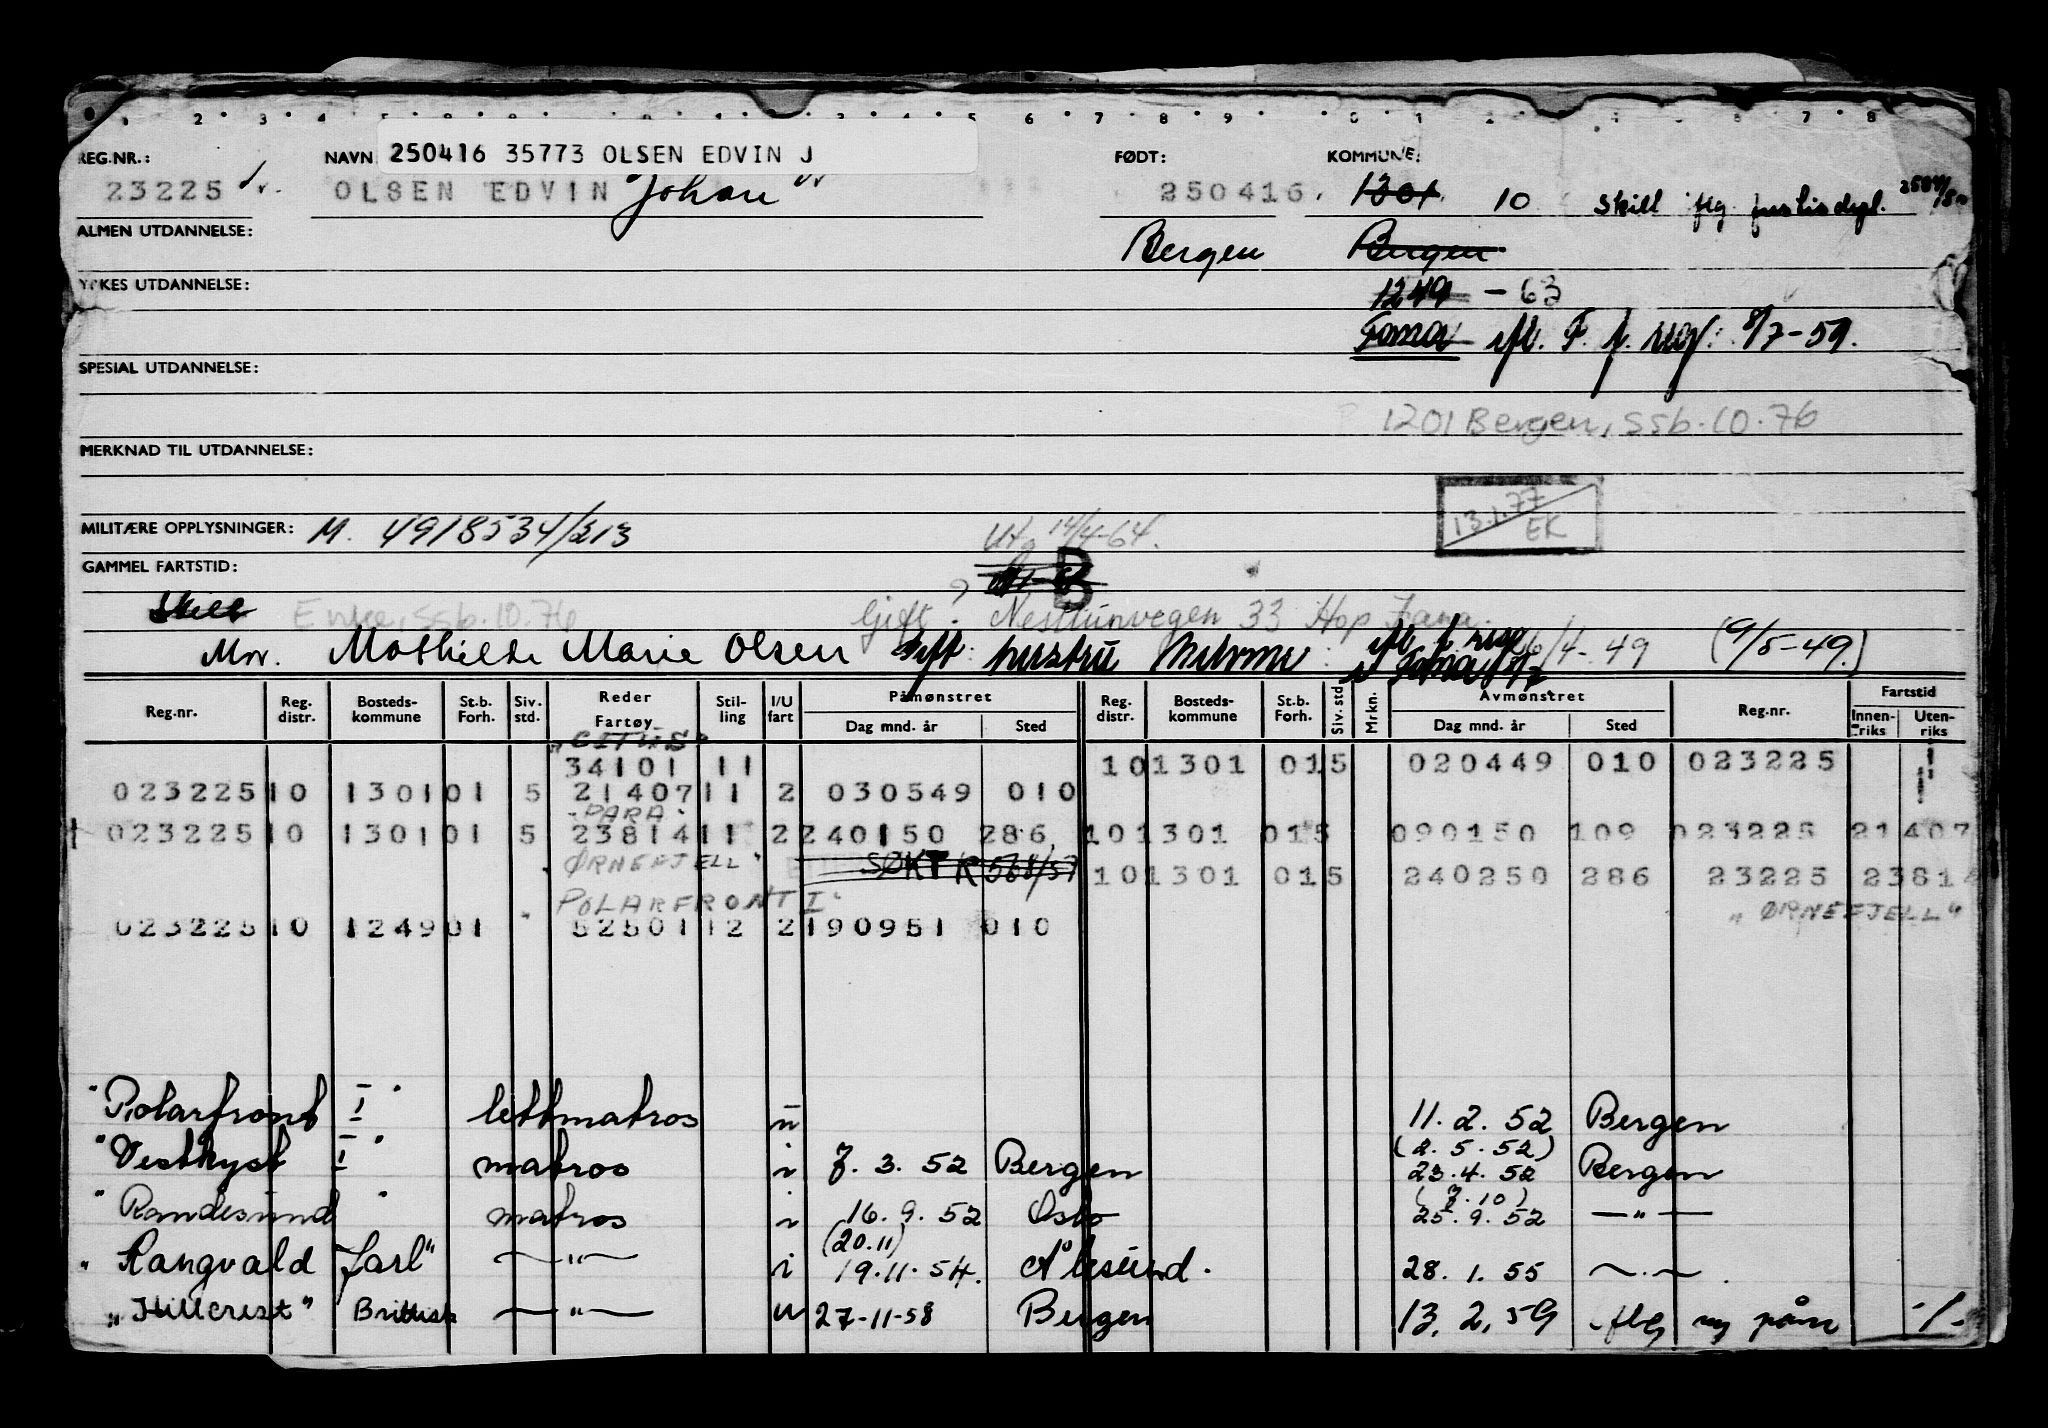 REG.NR.: NAVN 250416 35773 OLSEN EDVIN J FØDT: KOMMUNE:
23225 OLSEN EDVIN Johan 250416. 1301 10 skilt flg justisdepl.
ALMEN UTDANNELSE: Bergen Bergen
YRKES UTDANNELSE: 1249 - 63
Fana ifl. F. f. reg: 8/7-59.
SPESIAL UTDANNELSE:
1201 Bergen, ssb.10.76
MERKNAD TIL UTDANNELSE:
13.1.77
EK
MILITÆRE OPPLYSNINGER: M. 4918534/213 Utg 14/4-64.
GAMMEL FARTSTID: B
Skilt Enke, ssb.10.76 Gift. Nesttunvegen 33 Hop Fana.
Mor. Mathilde Marie Olsen Gift hustru 4-49 (9/5-49.)
Reg.nr. Reg. distr. Bosteds-kommune St.b. Forh. Siv. std. Reder Fartøy Stil-ling I/U fart Påmønstret Dag mnd. år Sted Reg. distr. Bosteds-kommune St.b. Forh. Siv. std Mrkn. Avmønstret Dag mnd. år Sted Reg.nr. Fartstid Innen-riks Uten-riks
34101 11 10 1301 01 5 020449 010 023225
023225 10 1301 01 5 21407 11 2 030549 010
"PARA"
023225 10 1301 01 5 23814 11 2 240150 286 10 1301 01 5 090150 109 023225 21407
"ØRNEFJELL" SØKT R 568/57 10 1301 01 5 240250 286 23225 23814
"POLARFRONT I" "ØRNEFJELL"
023225 10 1249 01 52501 12 2 190951 010
"Polarfront I" lettmatros u 11. 2. 52 Bergen
(2. 5. 52)
"Vestkyst I" matros i 7. 3. 52 Bergen 23. 4. 52 Bergen
(7. 10)
"Randesund" matros i 16. 9. 52 Oslo 25. 9. 52 — " —
(20.11)
"Rangvald Jarl" — " — i 19.11.54. Ålesund. 28. 1. 55 — " —
"Hillcrest" Brittisk — " — u 27-11-58 Bergen 13. 2. 59 flg ny påm -/-